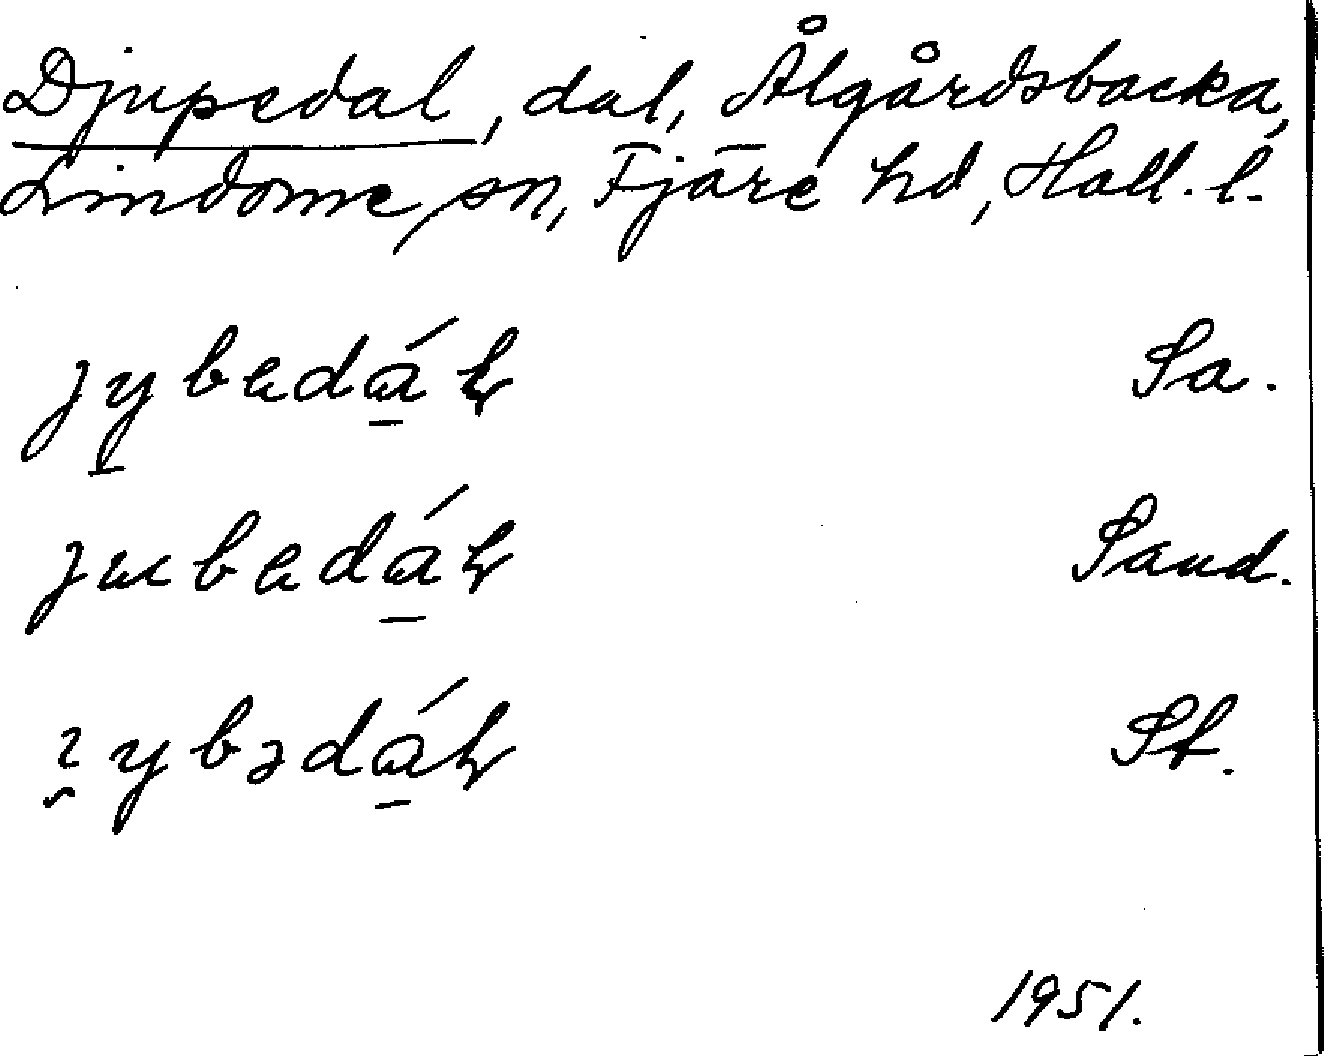 Djupedal, dal, Ålgårdsbacka,
Lindome sn, Fjäre hd, Hall. l.
Sa.
Sand.
St.
1951.